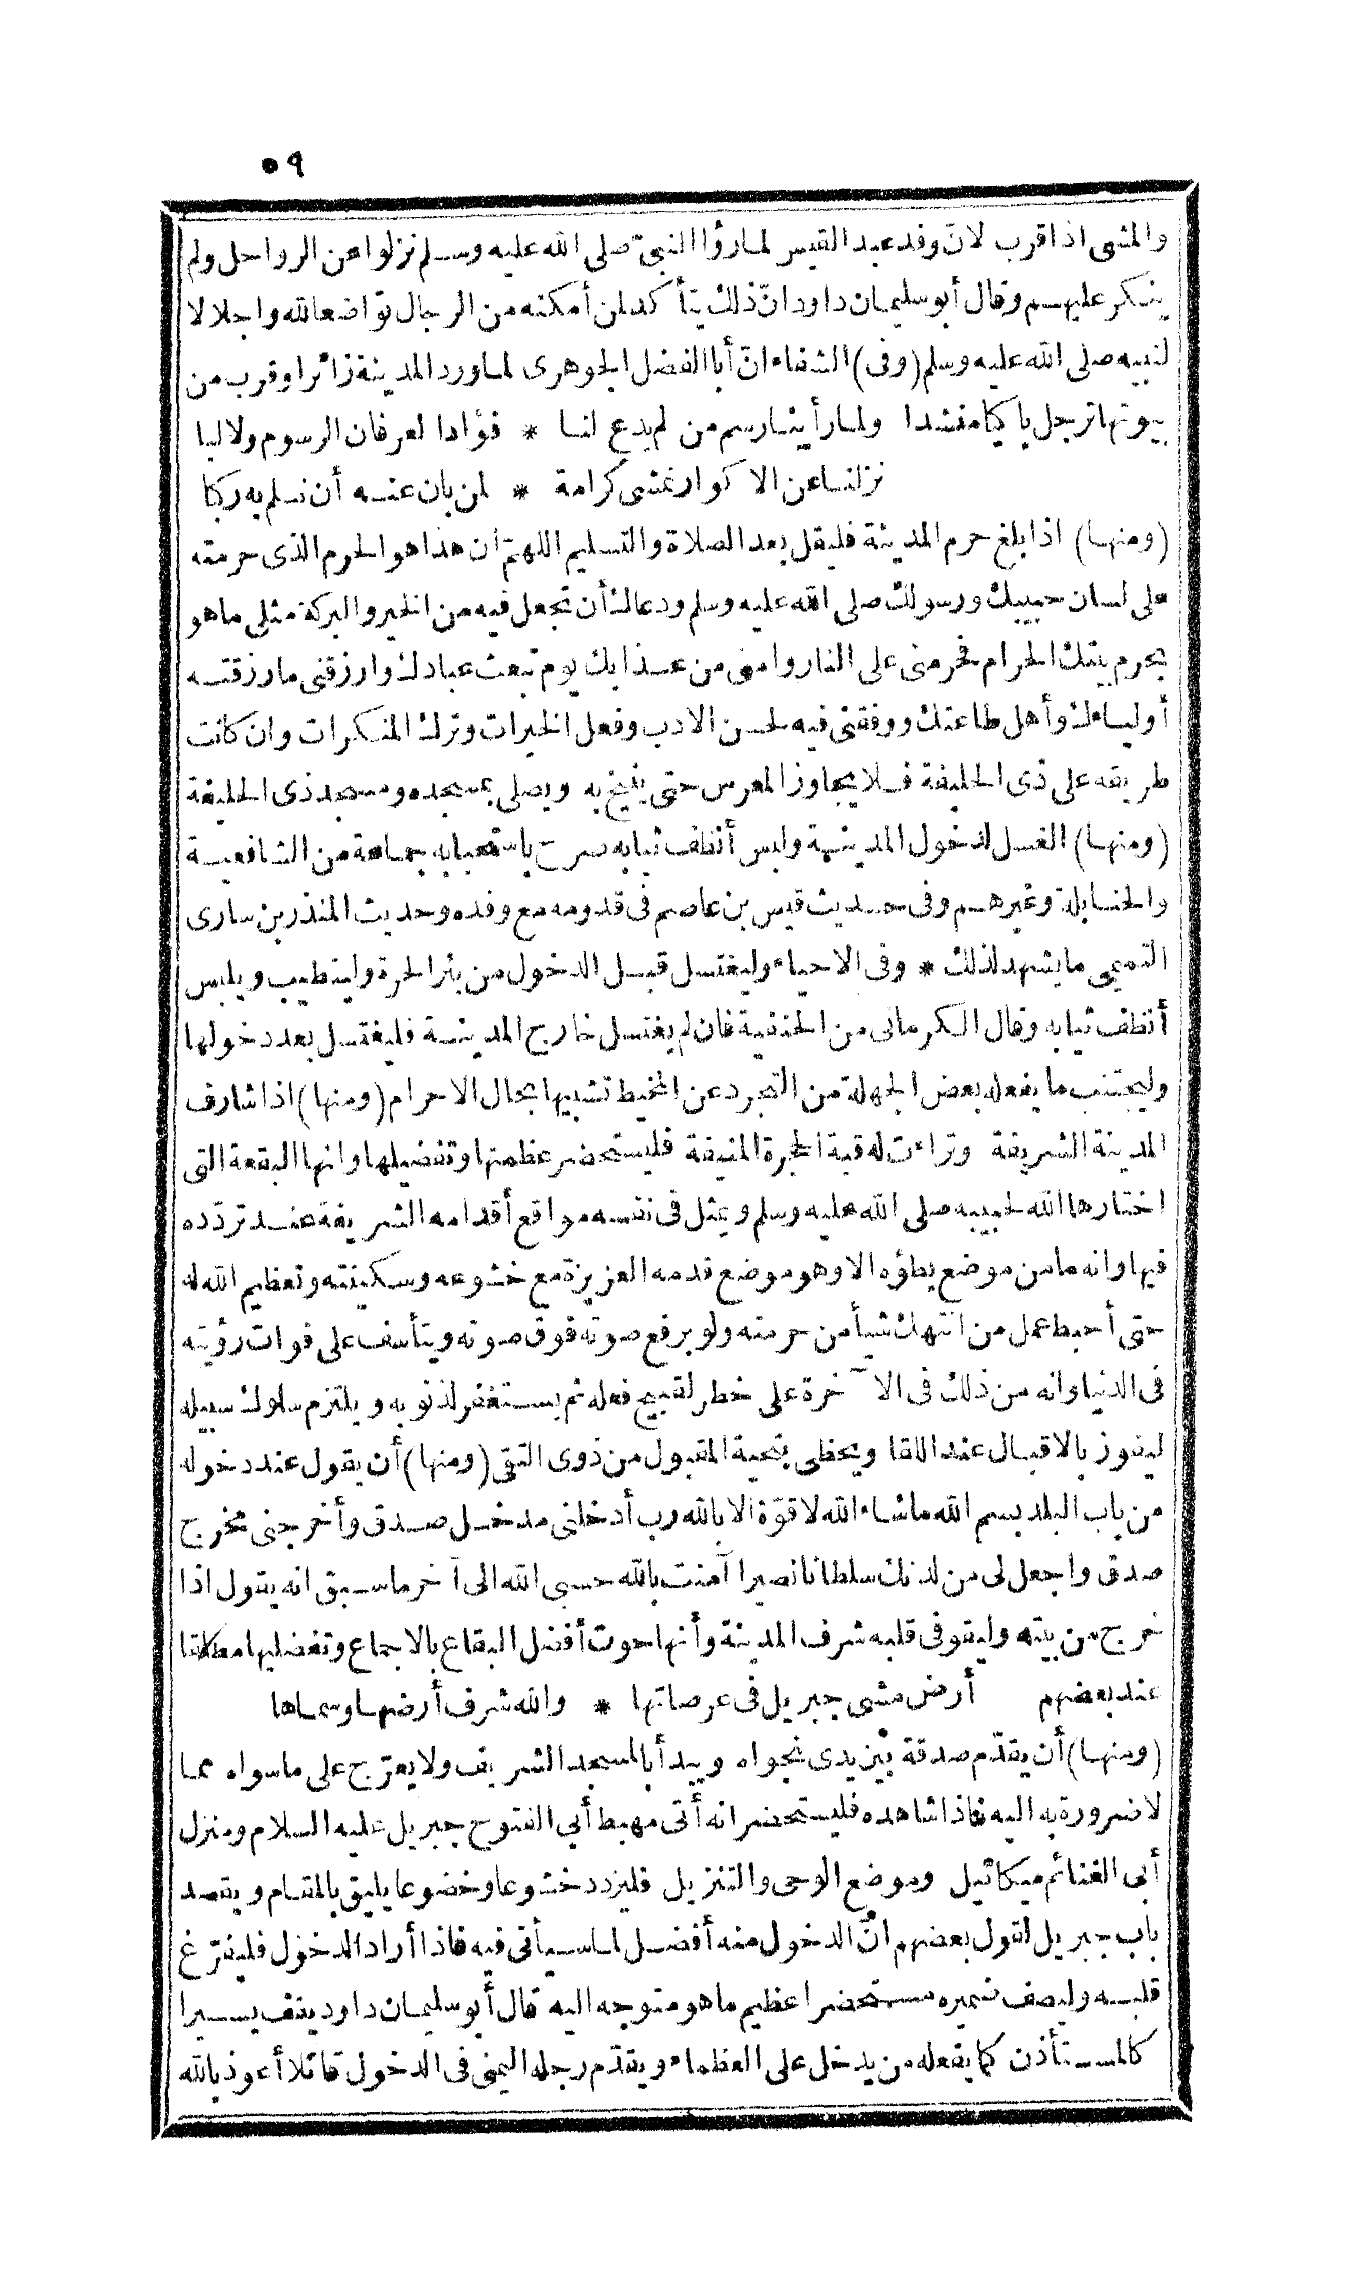 ٥٩
والمشى اذا قرب لان وفد عبد القيس لما رؤا النبىّ صلى الله عليه وسلم نزلوا عن الرواحل ولم
ينكر عليهم وقال أبو سليمان داود انّ ذلك يتأكد لمن أمكنه من الرجال تواضعا لله واجلالا
لنبيه صلى الله عليه وسلم (وفى) الشفاء انّ أبا الفضل الجوهرى لما ورد المدينة زائرا وقرب من
بيوتها ترجل باكيا منشدا ولما رأينا رسم من لم يدع لنا * فؤادا لعرفان الرسوم ولا لبا
نزلنا عن الاكوار نمشى كرامة * لمن بان عنه أن نسلم به ركبا
(ومنها) اذا بلغ حرم المدينة فليقل بعد الصلاة والتسليم اللهمّ ان هذا هو الحرم الذى حرمته
على لسان حبيبك ورسولك صلى الله عليه وسلم ودعاك أن تجعل فيه من الخير والبركة مثلى ما هو
بحرم بيتك الحرام فحرمنى على النار وامنى من عذابك يوم تبعث عبادك وارزقنى مارزقته
أولياءك وأهل طاعتك ووفقنى فيه لحسن الادب وفعل الخيرات وترك المنكرات وان كانت
طريقه على ذى الحليفة فلا يجاوز المعرس حتى ينيخ به ويصلى بمسجده ومسجد ذى الحليفة
(ومنها) الغسل لدخول المدينة ولبس أنظف ثيابه صرح باستحبابه جماعة من الشافعية
والحنابلة وغيرهم وفى حديث قيس بن عاصم فى قدومه مع وفده وحديث المنذر بن سارى
التميمى ما يشهد لذلك * وفى الاحياء وليغتسل قبل الدخول من بئر الحرة وليتطيب ويلبس
أنظف ثيابه وقال الكرمانى من الحنفية فان لم يغتسل خارج المدينة فليغتسل بعد دخولها
وليجتنب ما يفعله بعض الجهلة من التجرد عن المخيط تشبيها بحال الاحرام (ومنها) اذا شارف
المدينة الشريفة وتراءت له قبة الحجرة المنيفة فليستحضر عظمتها وتفضيلها وانها البقعة التى
اختارها الله لحبيبه صلى الله عليه وسلم ويمثل فى نفسه مواقع أقدامه الشريفة عند تردّده
فيها وانه ما من موضع يطؤه الا وهو موضع قدمه العزيزة مع خشوعه وسكينته وتعظيم الله له
حتى أحبط عمل من انتهك شيأ من حرمته ولو برفع صوته فوق صوته ويتأسف على فوات رؤيته
فى الدنيا وانه من ذلك فى الآخرة على خطر لقبيح فعله ثم يستغفر لذنوبه ويلتزم سلوك سبيله
ليفوز بالاقبال عند اللقا ويحظى بتحية المقبول من ذوى التقى (ومنها) أن يقول عند دخوله
من باب البلد بسم الله ما شاء الله لا قوّة الا بالله رب أدخلنى مدخل صدق وأخرجنى مخرج
صدق واجعل لى من لدنك سلطانا نصيرا آمنت بالله حسبى الله الى آخر ما سبق انه يقول اذا
خرج من بيته وليقو فى قلبه شرف المدينة وأنها حوت أفضل البقاع بالاجماع وتفضيلها مطلقا
عند بعضهم أرض مشى جبريل فى عرصاتها * والله شرف أرضها وسماها
(ومنها) أن يقدّم صدقة بين يدى نجواه ويبدأ بالمسجد الشريف ولا يعرّج على ما سواه مما
لا ضرورة به اليه فاذا شاهده فليستحضر انه أتى مهبط أبى الفتوح جبريل عليه السلام ومنزل
أبى الغنائم ميكائيل وموضع الوحى والتنزيل فليزدد خشوعا وخضوعا يليق بالمقام ويقصد
باب جبريل لقول بعضهم انّ الدخول منه أفضل لما سيأتى فيه فاذا أراد الدخول فليفرّغ
قلبه وليصف ضميره مستحضرا عظيم ما هو متوجه اليه قال أبو سليمان داود يقف يسيرا
كالمستأذن كما يفعله من يدخل على العظماء ويقدّم رجله اليمنى فى الدخول قائلا أعوذ بالله